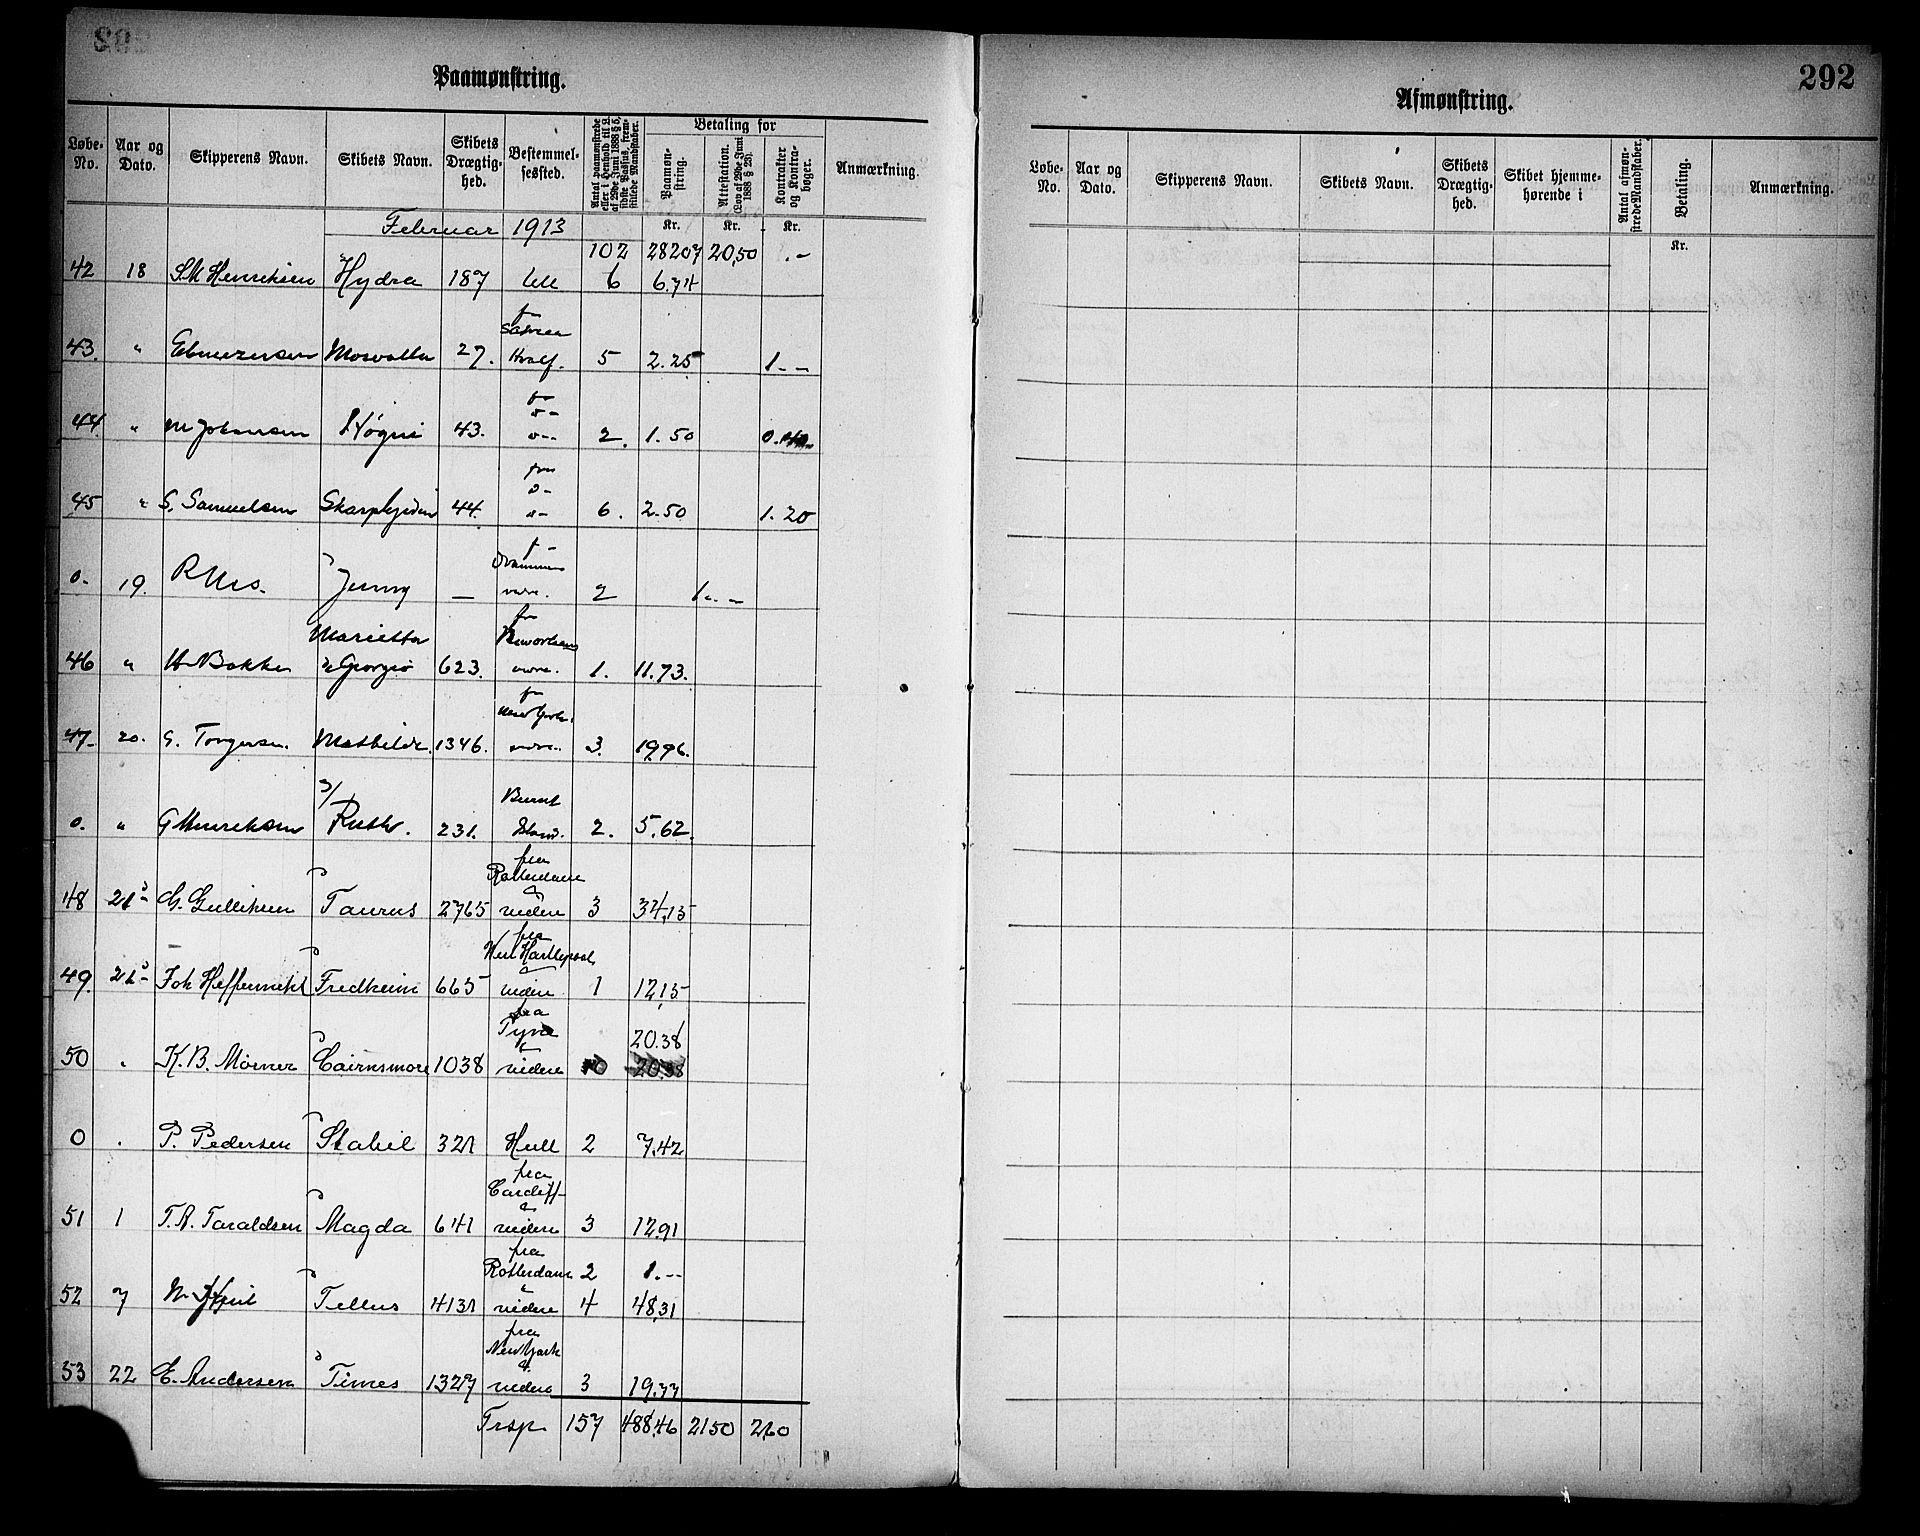 Paamønstring.
Løbe-No. | Aar og Dato. | Skipperens Navn. | Skibets Navn. | Skibets Drægtighed. | Bestemmelsessted. | Antal paamønstrede eller i Henhold til L. af 29de Juni 1888 § 5, sidste Passus, fremstillede Mandskaber. | Betaling for | Anmærkning.
Paamønstring. | Attestation. (Lov af 29de Juni 1888 § 23). | Kontrakter og Kontrabøger.
Februar 1913 | Kr. | Kr. | Kr.
102 | 28207 | 20,50 | .-
42 | 18 | S.M Henriksen | Hydra | 187 | 6 | 6.74
43. | " | Mosvalla | 27. | 5 | 2.25 | 1.--
44 | " | M Johansen | Høgni | 43. | 2. | 1.50 | 0.40
45 | " | S. Samuelsen | Skarphedin | 44. | 6. | 2.50 | 1.20
0. | 19. | Jenny | — | 2 | 1.--
Marietta
46 | " | H Bakke | 623. | 1. | 11.73.
fr New York
47- | 20. | G. Torgersen. | Mathilde. | 1346. | 3. | 19,96.
Burnt
0. | " | G Henriksen | Ruth. | 231. | Island. | 2. | 5,62.
fra Rotterdam
48 | 21 | G. Gulliksen | Taurus | 2765 | videre | 3 | 34,15
fra West Hartlepool
49. | 21 | Joh Heffermehl | Fredheim | 665 | videre | 1 | 12,15
fra Tyne | 20.38
50 | " | K. B. Mørner | Cairnsmore | 1038 | videre | 20.38
0 | . | P. Pedersen | Stabil | 321 | Hull | 2 | 7,42
fra Cardiff
51 | 1 | T. A. Taraldsen | Magda | 641 | videre | 3 | 12.91
fra Rotterdam | 2 | 1.--
52 | 7 | Tellus | 4131 | videre | 4 | 48,31
fra New York
53 | 22 | E. Andersen | Times | 1327 | videre | 3 | 19.77
Trsp | 157 | 488,46 | 2150 | 2.60
292
Afmønstring.
Løbe-No. | Aar og Dato. | Skipperens Navn. | Skibets Navn. | Skibets Drægtighed. | Skibet hjemmehørende i | Antal afmønstrede Mandskaber. | Betaling. | Anmærkning.
Kr.